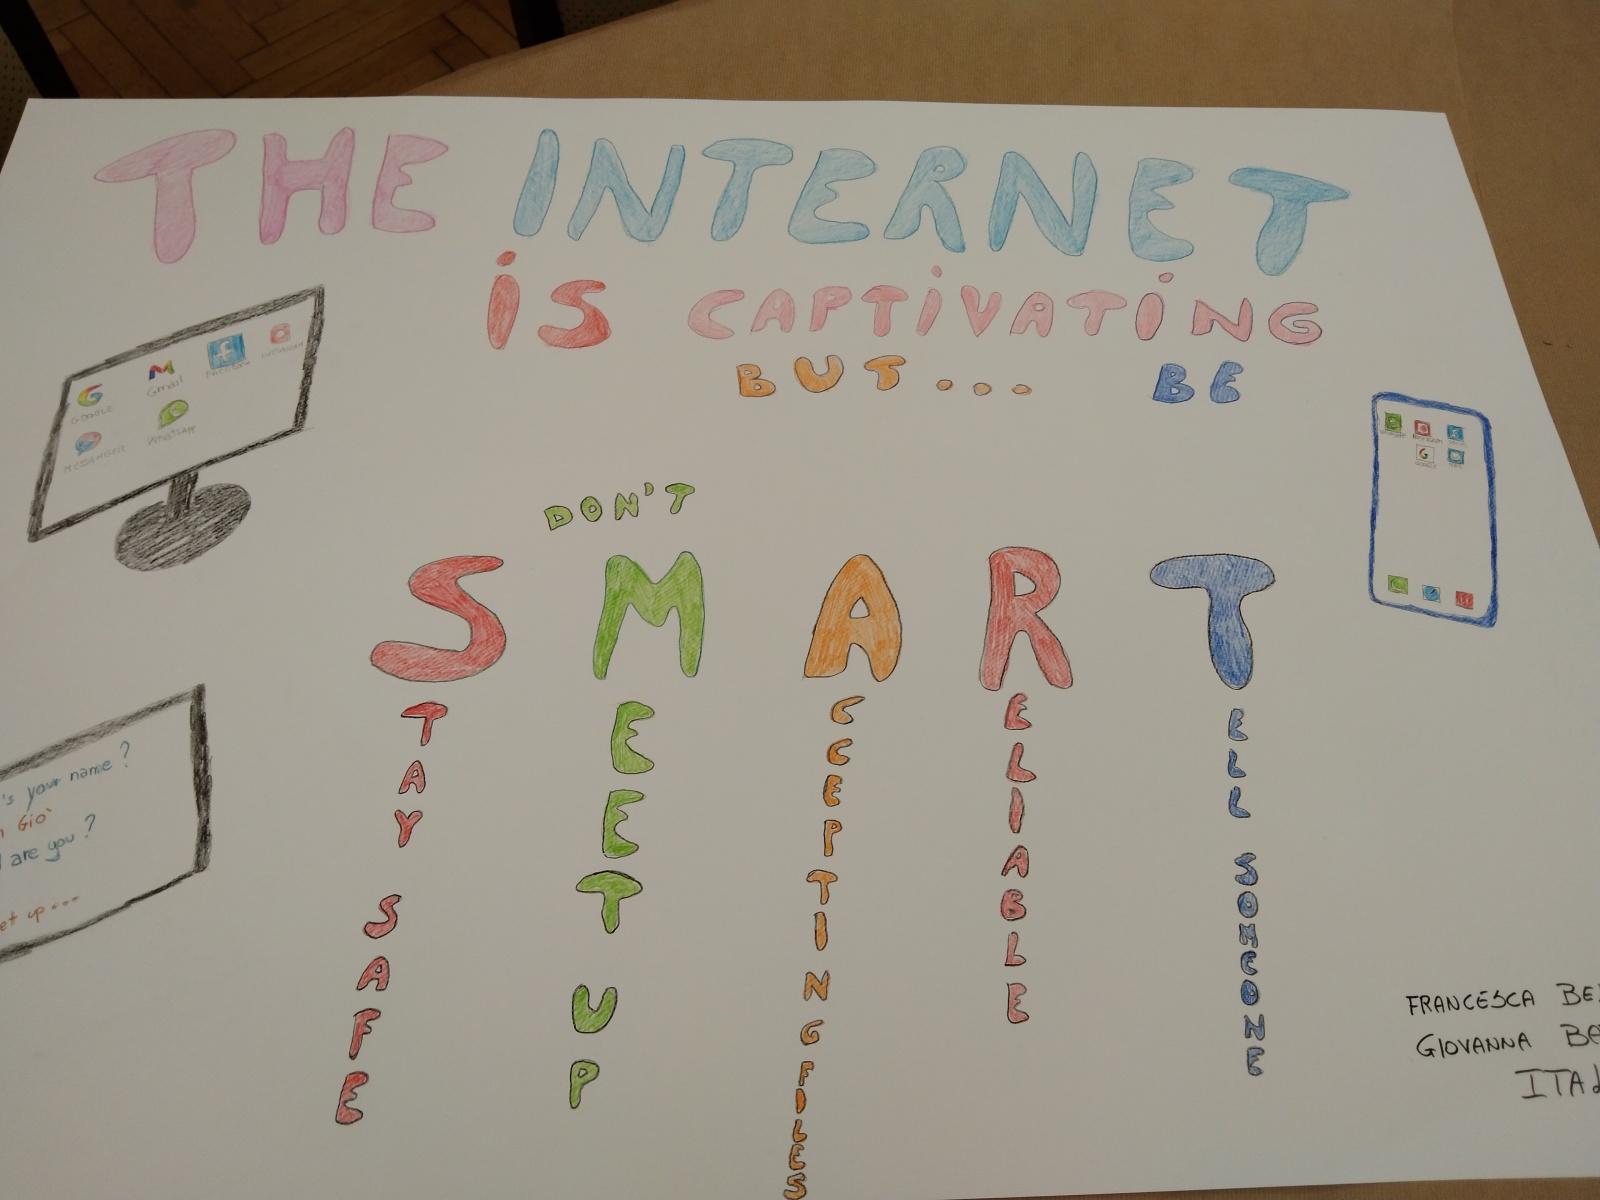 THE INTERNET
iS CAPTiVATiNG
BUT... BE
GOOGLE
Gmail
FACEBOOK
INSTAGRAM
MESSANGER
WHATSAPP
DON'T
SMART
STAY SAFE
MEET UP
ACCEPTING FILES
RELIABLE
TELL SOMEONE
's your name?
Giò
are you?
et up...
GOOGLE
FRANCESCA
GIOVANNA